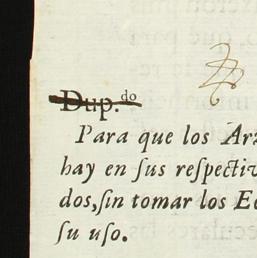 Dup.do
Para que los Arz
hay en ſus reſpectiv
dos, ſin tomar los Ec
ſu uſo.